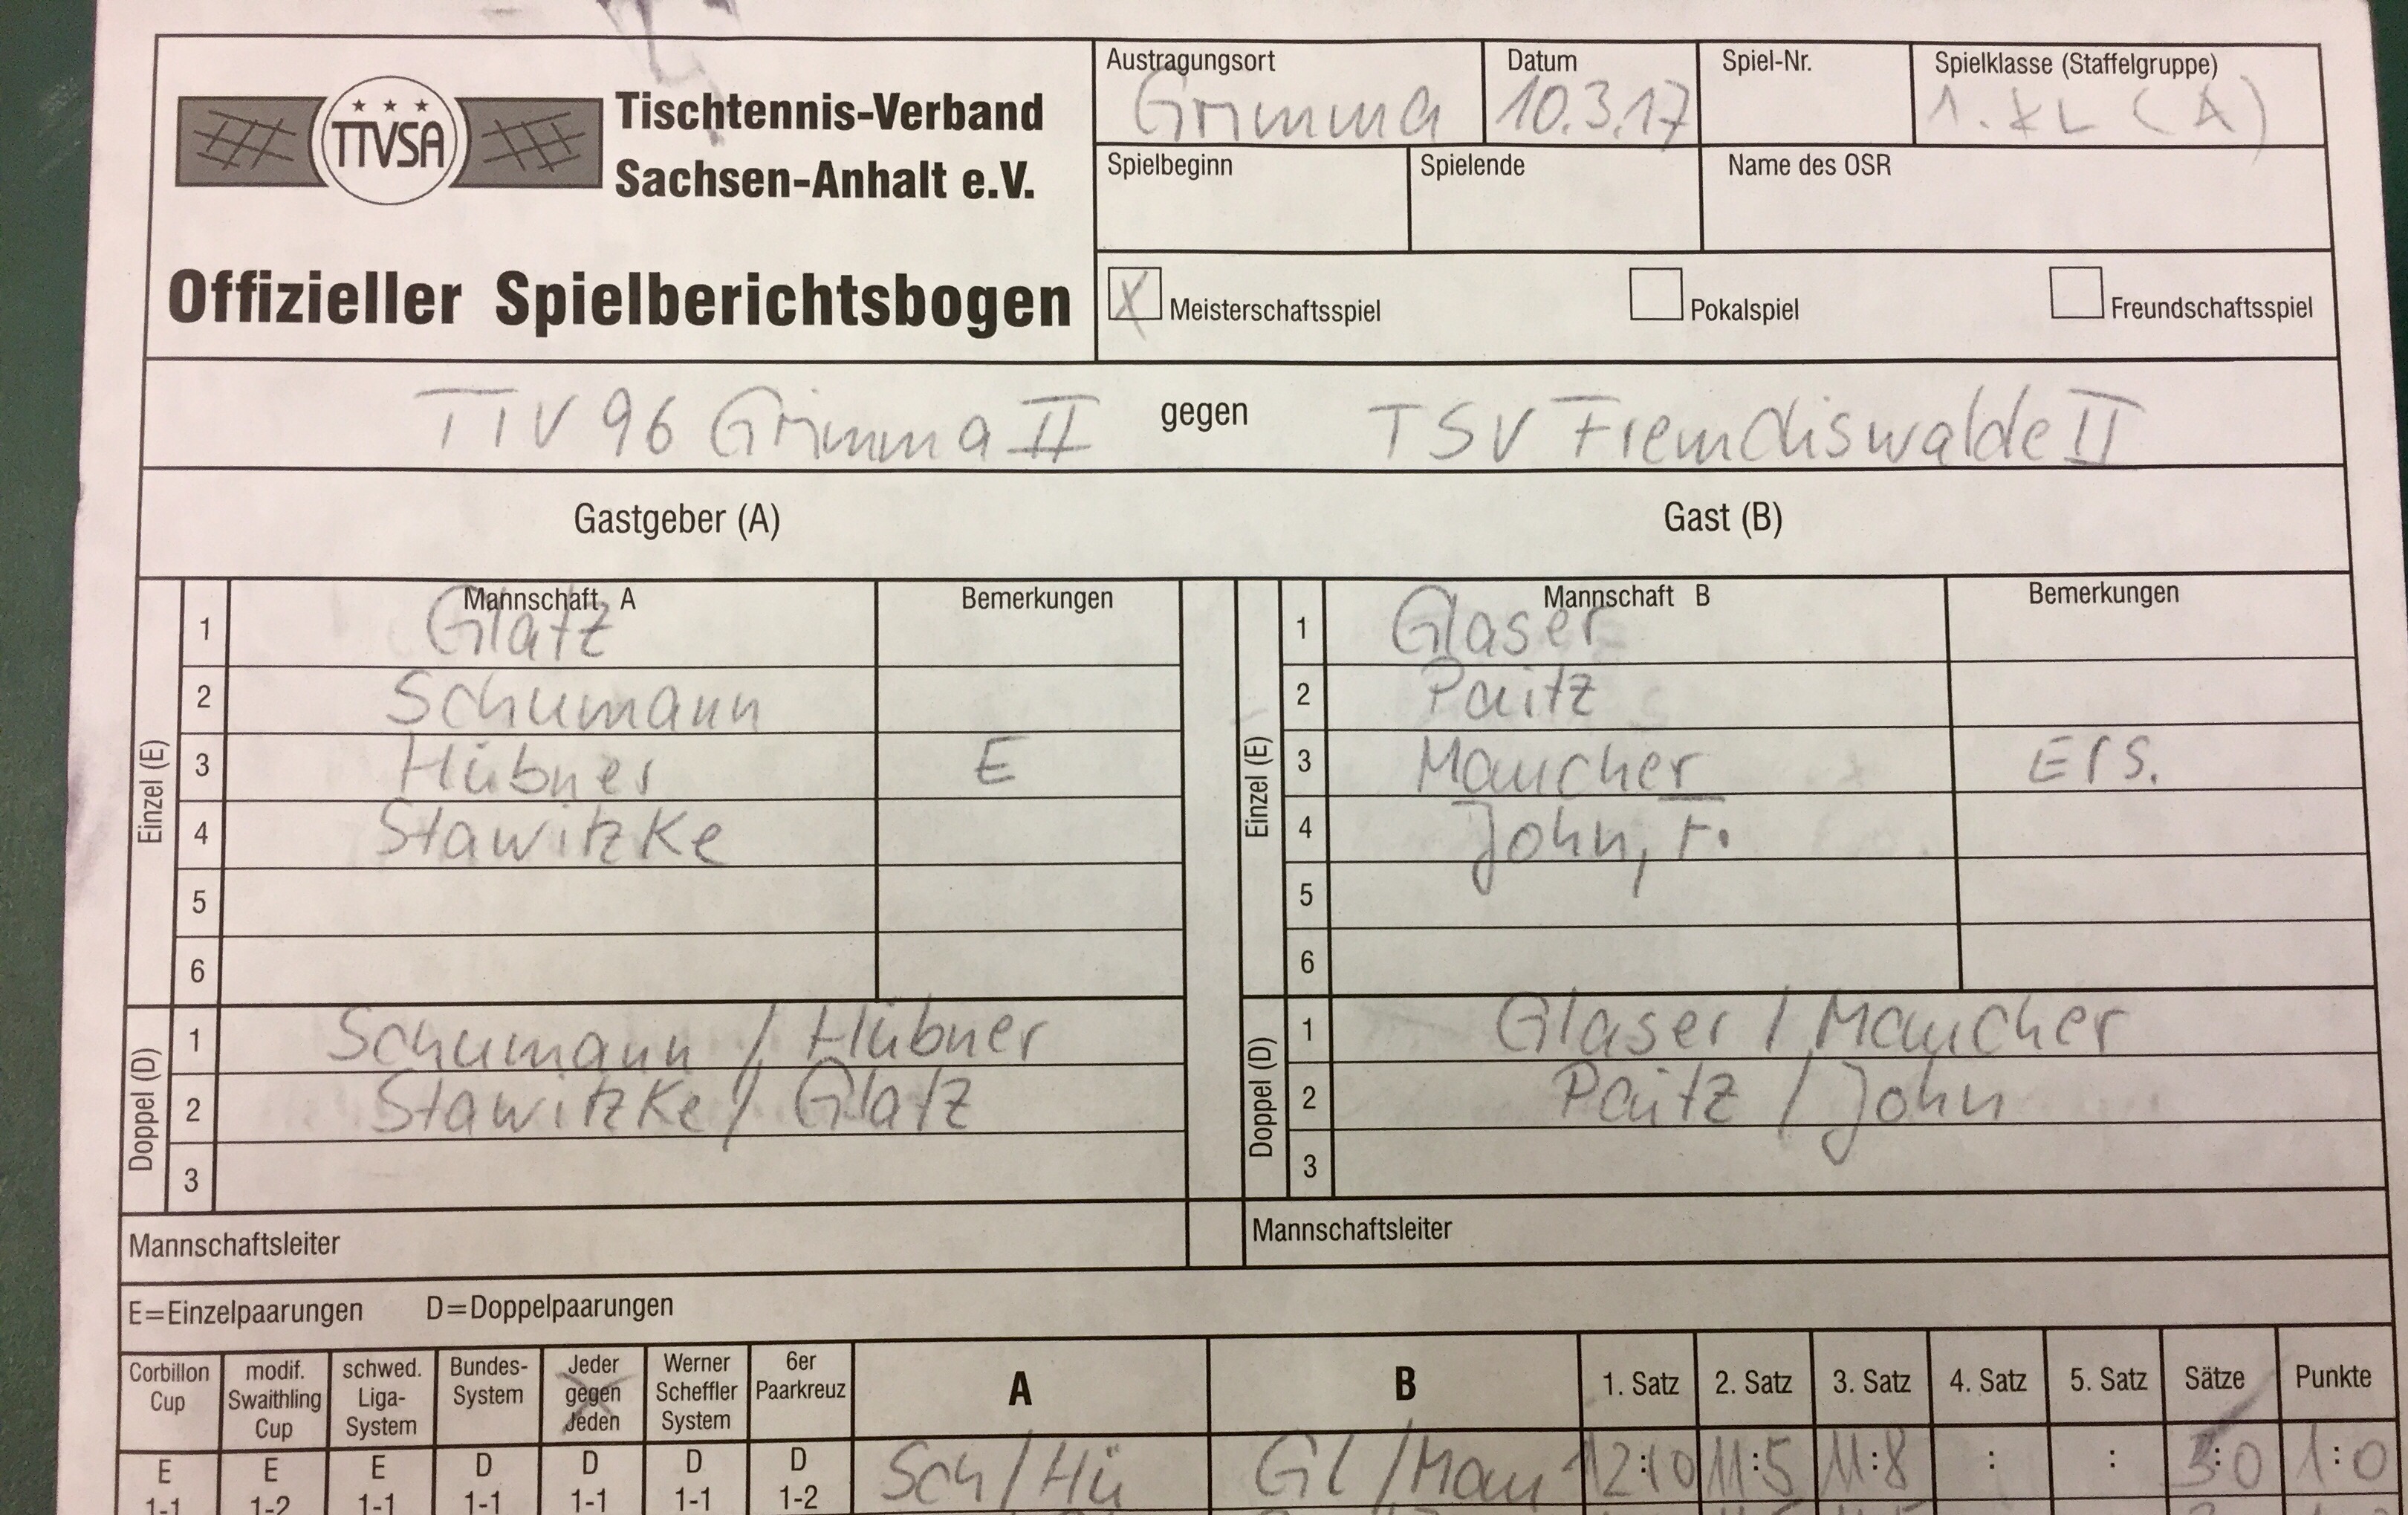 Austragungsort Datum Spiel-Nr. Spielklasse (Staffelgruppe)
Grimma 10.3.17 1. KL (A)
TTVSA
Tischtennis-Verband
Sachsen-Anhalt e.V.
Spielbeginn Spielende Name des OSR
Offizieller Spielberichtsbogen
X Meisterschaftsspiel Pokalspiel Freundschaftsspiel
TTV 96 Grimma II gegen TSV Fremdiswalde II
Gastgeber (A) Gast (B)
Mannschaft A Bemerkungen Mannschaft B Bemerkungen
Einzel (E) Einzel (E)
1 Glatz 1 Glaser
2 Schumann 2 Paitz
3 Hübner E 3 Maucher Ers.
4 Stawitzke 4 John, F.
5 5
6 6
Doppel (D) Doppel (D)
1 Schumann / Hübner 1 Glaser / Maucher
2 Stawitzke / Glatz 2 Paitz / John
3 3
Mannschaftsleiter Mannschaftsleiter
E=Einzelpaarungen D=Doppelpaarungen
Corbillon Cup modif. Swaithling Cup schwed. Liga-System Bundes-System Jeder gegen Jeden Werner Scheffler System 6er Paarkreuz A B 1. Satz 2. Satz 3. Satz 4. Satz 5. Satz Sätze Punkte
E E E D D D D Sch / Hü Gl / Mau 12:10 11:5 11:8 : : 3:0 1:0
1-1 1-2 1-1 1-1 1-1 1-1 1-2